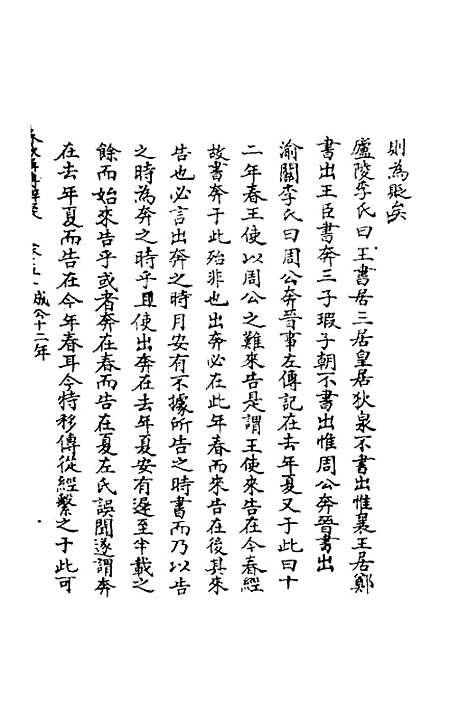 則為貶矣
廬陵李氏曰王書居三居皇居狄泉不書出惟襄王居鄭
書出王臣書奔三子瑕子朝不書出惟周公奔晉書出
渝關李氏曰周公奔晉事左傳記在去年夏又于此曰十
二年春王使以周公之難來告是謂王使來告在今春經
故書奔于此殆非也出奔必在此年春而來告在後其來
告也必言出奔之時月安有不據所告之時書而乃以告
之時為奔之時乎且使出奔在去年夏安有遲至半載之
餘而始來告乎或者奔在春而告在夏左氏誤聞遂謂奔
在去年夏而告在今年春耳今特移傳從經繫之于此可
卷五 成公十二年